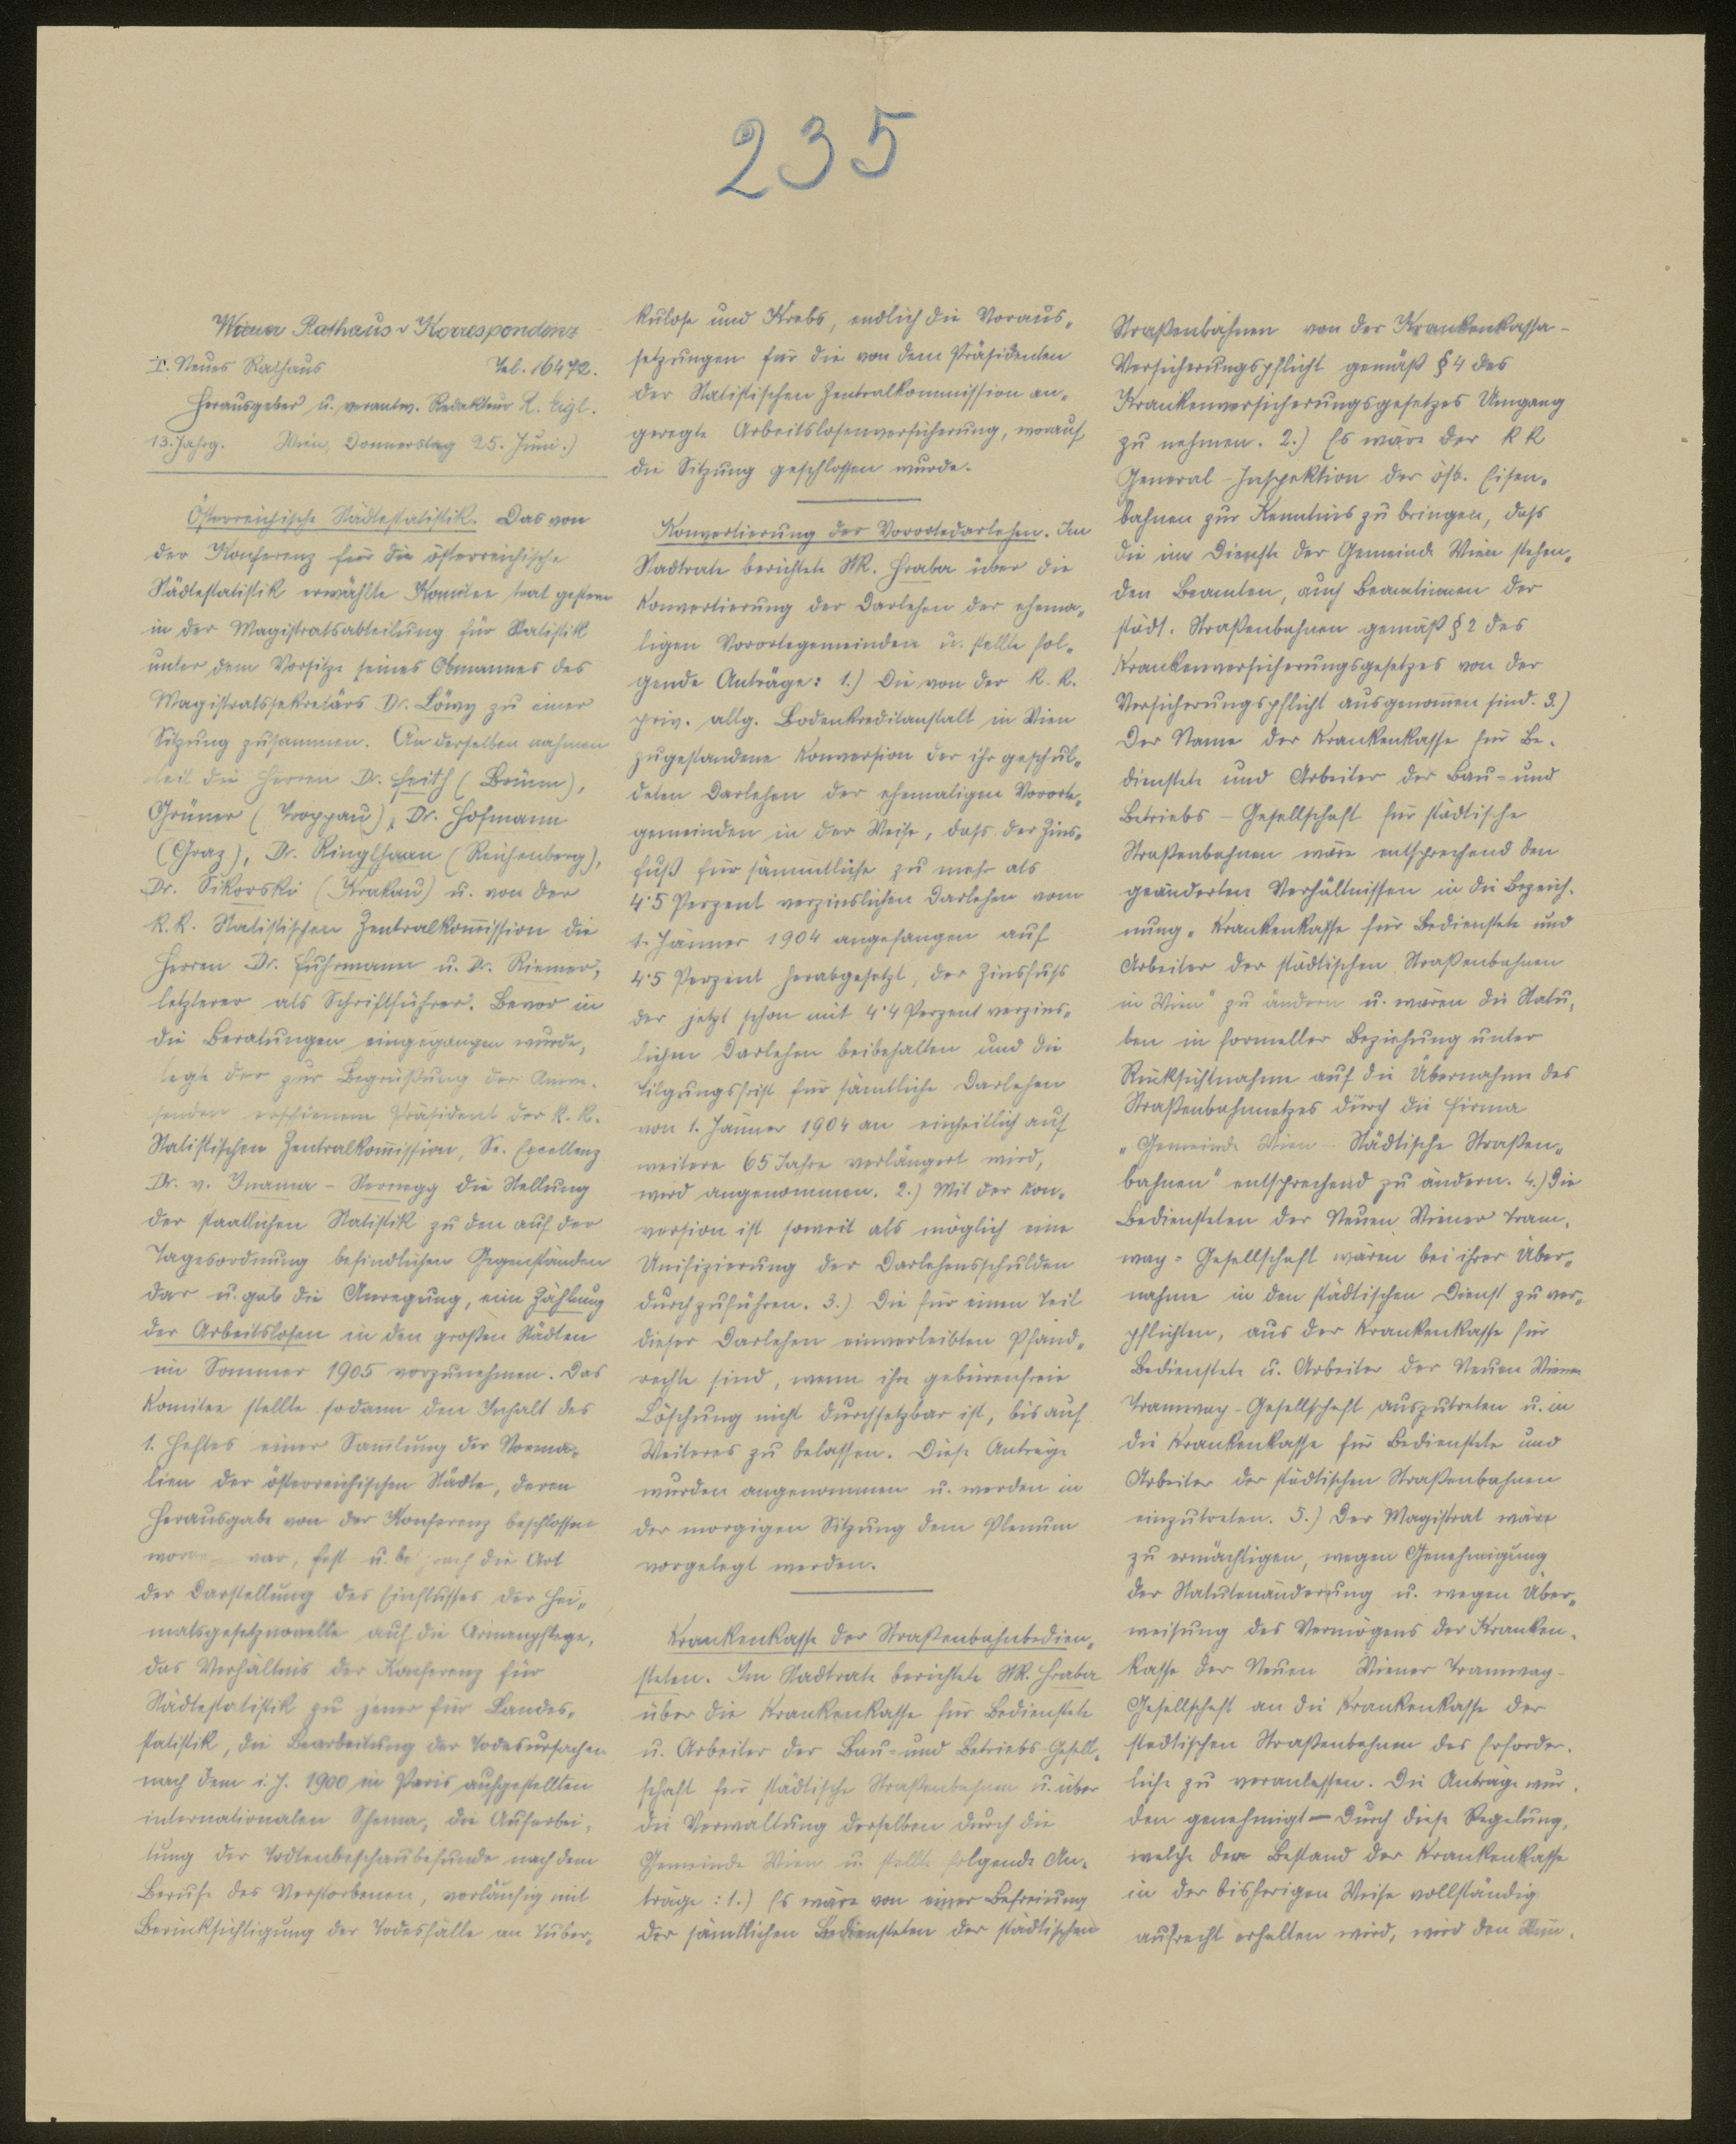 235
Wiener Rathaus-Korrespondenz
I. Neues Rathaus Tel. 16472.
Herausgeber u. verantw. Redakteur R. Eigl.
13. Jahrg. Wien, Donnerstag 25. Juni.)
Österreichische Städtestatistik. Das von
der Konferenz für die österreichische
Städtestatistik erwählte Komitee trat gestern
in der Magistratsabteilung für Statistik
unter dem Vorsitze seines Obmannes des
Magistratssekretärs Dr. Löwy zu einer
Sitzung zusammen. An derselben nahmen
teil die Herren Dr. Feith (Brünn),
Grüner (Troppau), Dr. Hofmann
(Graz), Dr. Ringlhaan (Reichenberg),
Dr. Sikorski (Krakau) u. von der
k.k. Statistischen Zentralkom̅ission die
Herren Dr. Fuhrmann u. Dr. Riemer,
letzterer als Schriftführer. Bevor in
die Beratungen eingegangen wurde,
legte der zur Begrüßung der Anwe-
senden erschienene Präsident der k.k.
Statistischen Zentralkom̅ission, Se. Excellenz
Dr. v. Inama-Sternegg die Stellung
der staatlichen Statistik zu den auf der
Tagesordnung befindlichen Gegenständen
dar u. gab die Anregung, eine Zählung
der Arbeitslosen in den großen Städten
im Sommer 1905 vorzunehmen. Das
Komitee stellte sodann den Inhalt des
1. Heftes einer Sam̅lung der Norma-
lien der österreichischen Städte, deren
Herausgabe von der Konferenz beschlossen
worden war, fest u. besprach die Art
der Darstellung des Einflusses der Hei-
matsgesetznovelle auf die Armenpflege,
das Verhältnis der Konferenz für
Städtestatistik zu jener für Landes-
statistik, die Bearbeitung der Todesursachen
nach dem i. J. 1900 in Paris aufgestellten
internationalen Schema, die Aufarbei-
tung der Todtenbeschaubefunde nach dem
Berufe des Verstorbenen, vorläufig mit
Berücksichtigung der Todesfälle an Tuber-
kulose und Krebs, endlich die Voraus-
setzungen für die von dem Präsidenten
der Statistischen Zentralkommission an-
geregte Arbeitslosenversicherung, worauf
die Sitzung geschlossen wurde.
Konvertierung der Vorortedarlehen. Im
Stadtrate berichtete StR. Hraba über die
Konvertierung der Darlehen der ehema-
ligen Vorortegemeinden u. stellte fol-
gende Anträge: 1.) Die von der k.k.
priv. allg. Bodenkreditanstalt in Wien
zugestandene Konversion der ihr geschul-
deten Darlehen der ehemaligen Vororte-
gemeinden in der Weise, dass der Zins-
fuß für sämmtliche zu mehr als
4·5 Perzent verzinslichen Darlehen vom
1. Jänner 1904 angefangen auf
4·5 Perzent herabgesetzt, der Zinsfuß
der jetzt schon mit 4·4 Perzent verzins-
lichen Darlehen beibehalten und die
Tilgungsfrist für sämtliche Darlehen
von 1. Jänner 1904 an einheitlich auf
weitere 65 Jahre verlängert wird,
wird angenommen. 2.) Mit der Kon-
version ist soweit als möglich eine
Unifizierung der Darlehensschulden
durchzuführen. 3.) Die für einen Teil
dieser Darlehen einverleibten Pfand-
rechte sind, wenn ihre gebürenfreie
Löschung nicht durchsetzbar ist, bis auf
Weiteres zu belassen. Diese Anträge
wurden angenommen u. werden in
der morgigen Sitzung dem Plenum
vorgelegt werden.
Krankenkasse der Straßenbahnbedien-
steten. Im Stadtrate berichtete StR. Hraba
über die Krankenkasse für Bedienstete
u. Arbeiter der Bau- und Betriebs-Gesell-
schaft für städtische Straßenbahnen u. über
die Verwaltung derselben durch die
Gemeinde Wien u. stellte folgende An-
träge: 1.) Es wäre von einer Befreiung
der sämtlichen Bediensteten der städtischen
Straßenbahnen von der Krankenkassa-
Versicherungspflicht gemäß § 4 des
Krankenversicherungsgesetzes Umgang
zu nehmen. 2.) Es wäre der k k
General-Inspektion der öst. Eisen-
bahnen zur Kenntnis zu bringen, dass
die im Dienste der Gemeinde Wien stehen-
den Beamten, auch Beamtinnen der
städt. Straßenbahnen gemäß § 2 des
Krankenversicherungsgesetzes von der
Versicherungspflicht ausgenom̅en sind. 3.)
Der Name der Krankenkasse für Be-
dienstete und Arbeiter der Bau- und
Betriebs-Gesellschaft für städtische
Straßenbahnen wäre entsprechend den
geänderten Verhältnissen in die Bezeich-
nung „Krankenkasse für Bedienstete und
Arbeiter der städtischen Straßenbahnen
in Wien" zu ändern u. wären die Statu-
ten in formeller Beziehung unter
Rücksichtnahme auf die Übernahme des
Straßenbahnnetzes durch die Firma
„Gemeinde Wien - Städtische Straßen-
bahnen" entsprechend zu ändern. 4.) Die
Bediensteten der Neuen Wiener Tram-
way-Gesellschaft wären bei ihrer Über-
nahme in den städtischen Dienst zu ver-
pflichten, aus der Krankenkasse für
Bedienstete u. Arbeiter der Neuen Wiener
Tramway-Gesellschaft auszutreten u. in
die Krankenkasse für Bedienstete und
Arbeiter der städtischen Straßenbahnen
einzutreten. 5.) Der Magistrat wäre
zu ermächtigen, wegen Genehmigung
der Statutenänderung u. wegen Über-
weisung des Vermögens der Kranken-
kasse der Neuen Wiener Tramway-
Gesellschaft an die Krankenkasse der
städtischen Straßenbahnen das Erforder-
liche zu veranlassen. Die Anträge wur-
den genehmigt - Durch diese Regelung,
welche den Bestand der Krankenkasse
in der bisherigen Weise vollständig
aufrecht erhalten wird, wird den Wün-